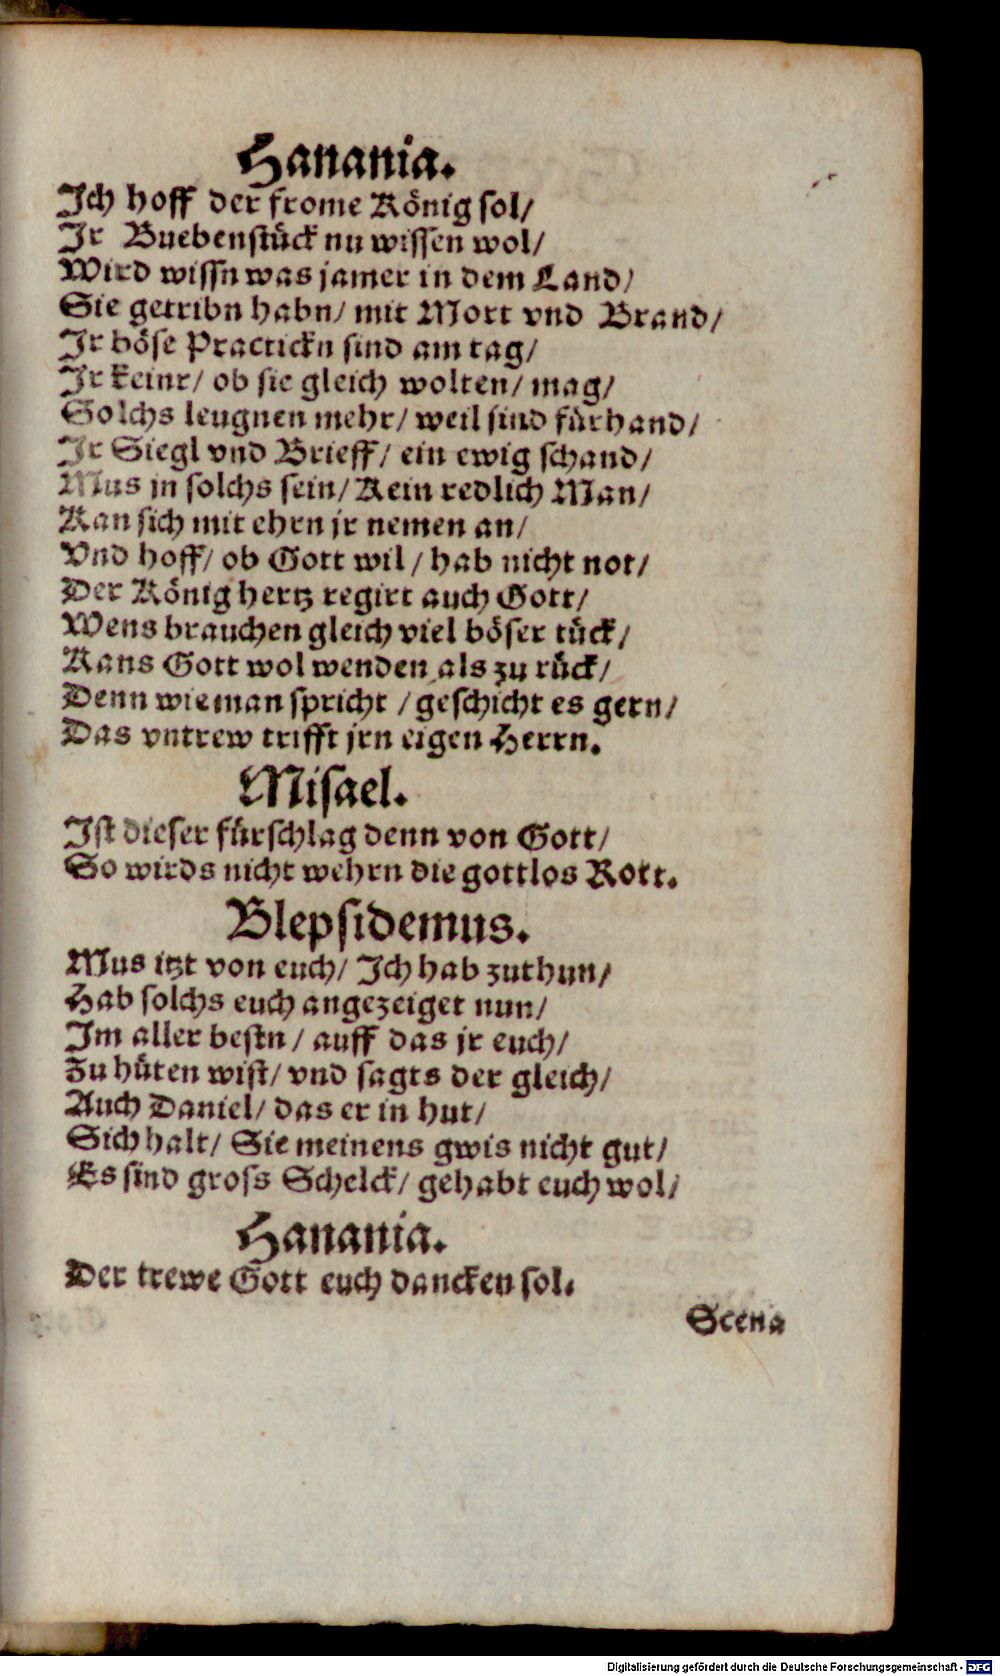 Hanania.
Ich hoff der frome König sol/
Ir Buebenstück nu wissen wol/
Wird wissn was jamer in dem Land/
Sie getribn habn/ mit Mort vnd Brand/
Ir böse Practickn sind am tag/
Ir keinr/ ob sie gleich wolten/ mag/
Solchs leugnen mehr/ weil sind fürhand/
Ir Siegl vnd Brieff/ ein ewig schand/
Mus jn solchs sein/ Kein redlich Man/
Kan sich mit ehrn jr nemen an/
Vnd hoff/ ob Gott wil/ hab nicht not/
Der König hertz regirt auch Gott/
Wens brauchen gleich viel böser tück/
Kans Gott wol wenden als zu rück/
Denn wie man spricht/ geschicht es gern/
Das vntrew trifft jrn eigen Herrn.
Misael.
Ist dieser fürschlag denn von Gott/
So wirds nicht wehrn die gottlos Rott.
Blepsidemus.
Mus itzt von euch/ Ich hab zuthun/
Hab solchs euch angezeiget nun/
Im aller bestn/ auff das jr euch/
Zu hüten wist/ vnd sagts der gleich/
Auch Daniel/ das er in hut/
Sich halt/ Sie meinens gwis nicht gut/
Es sind gross Schelck/ gehabt euch wol/
Hanania.
Der trewe Gott euch dancken sol.
Scena
Digitalisierung gefördert durch die Deutsche Forschungsgemeinschaft - DFG